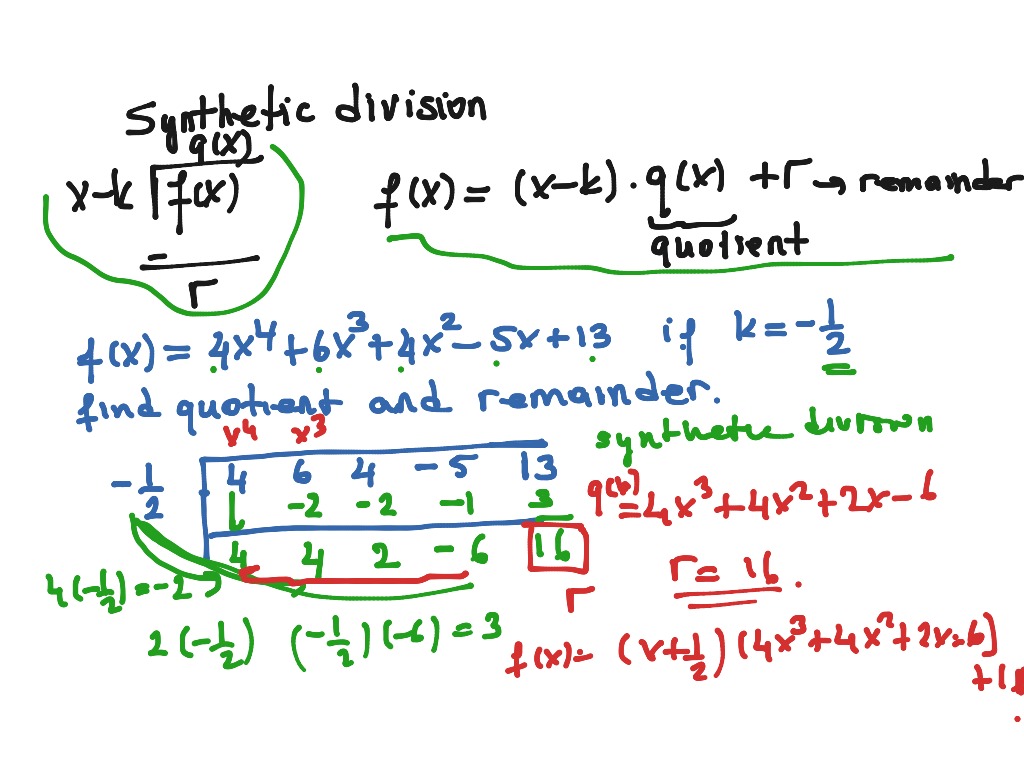 Synthetic division
q(x)
x-k f(x)
-
r
f(x) = (x-k) · q(x) + r → remainder
quotient
f(x) = 4x⁴ + 6x³ + 4x² - 5x + 13 if k = -1/2
find quotient and remainder.
synthetic division
x⁴ x³
-1/2 4 6 4 -5 13
-2 -2 -1 3
4 4 2 -6 16
r
q(x) = 4x³ + 4x² + 2x - 6
r = 16.
4(-1/2) = -2
2(-1/2) (-1/2)(-6) = 3
f(x) = (x + 1/2)(4x³ + 4x² + 2x - 6)